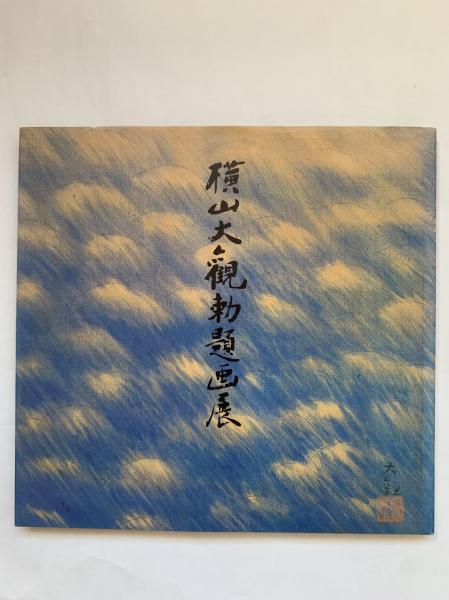 橫山大觀勅題画展
大観